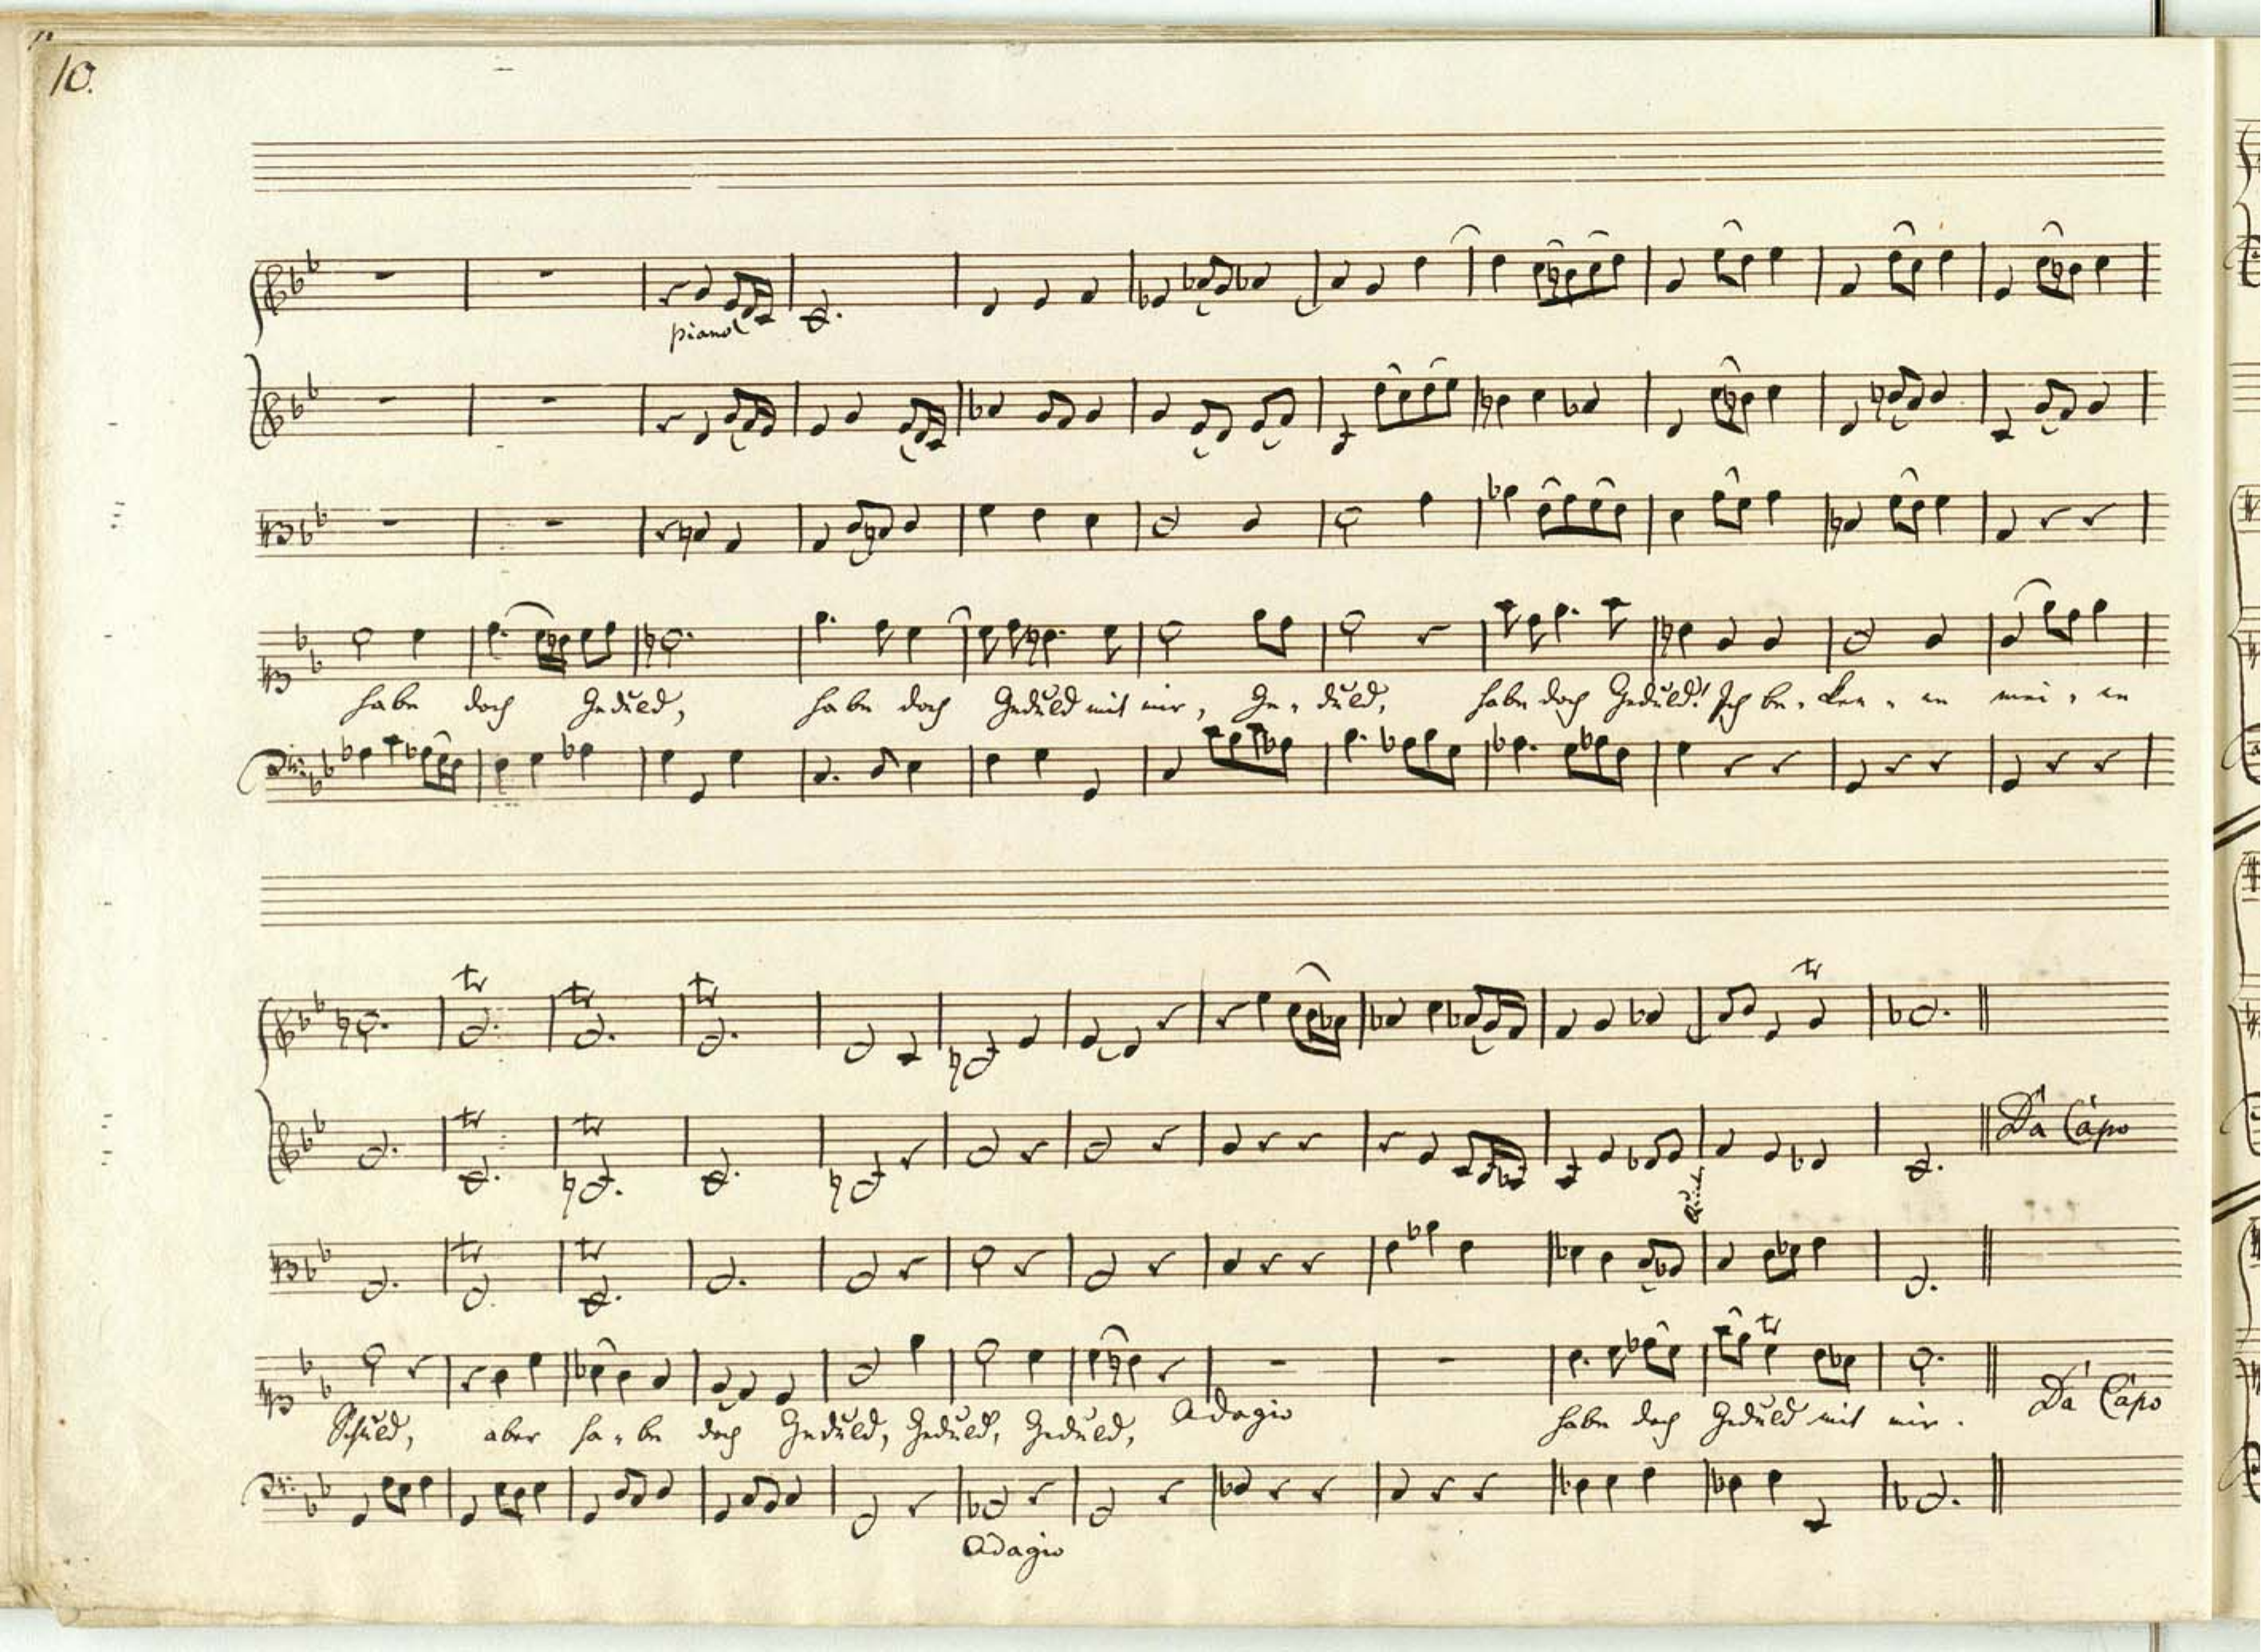 10.
piano
habe doch Geduld, habe doch Geduld mit mir, Ge-duld, habe doch Geduld! Ich be-ken-ne mei-ne
tr tr tr
tr
tr tr
Da Capo
tr tr
tr
Schuld, aber ha-be doch Geduld, Geduld, Geduld, Adagio habe doch Geduld mit mir. Da Capo
Adagio